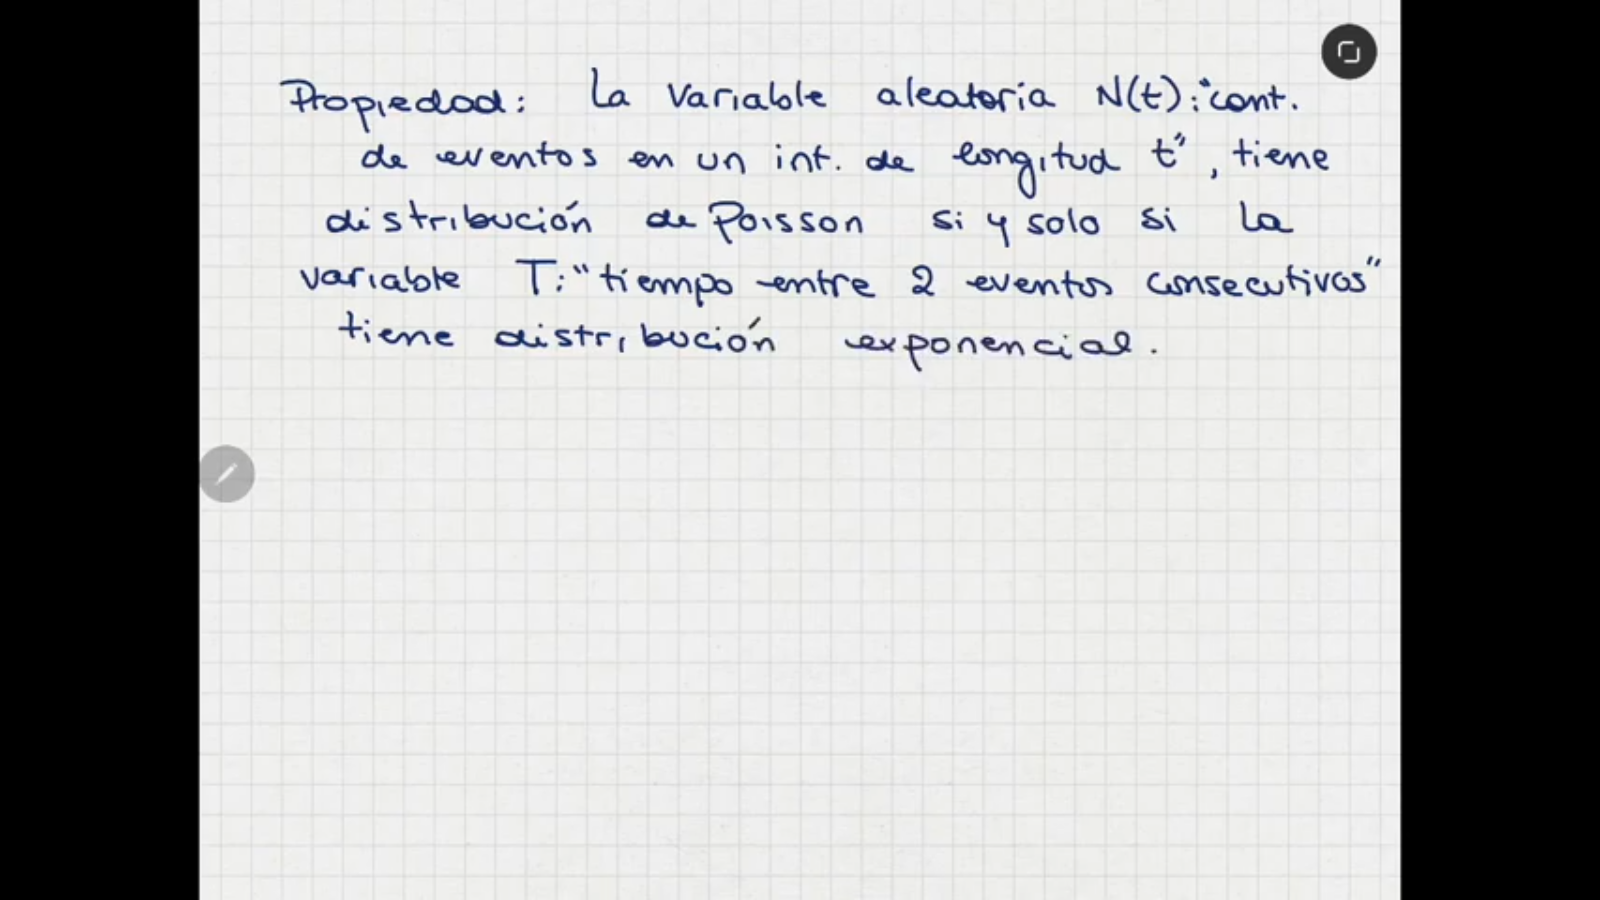 Propiedad: La variable aleatoria N(t): "cant.
de eventos en un int. de longitud t", tiene
distribución de Poisson si y solo si la
variable T: "tiempo entre 2 eventos consecutivos"
tiene distribución exponencial.